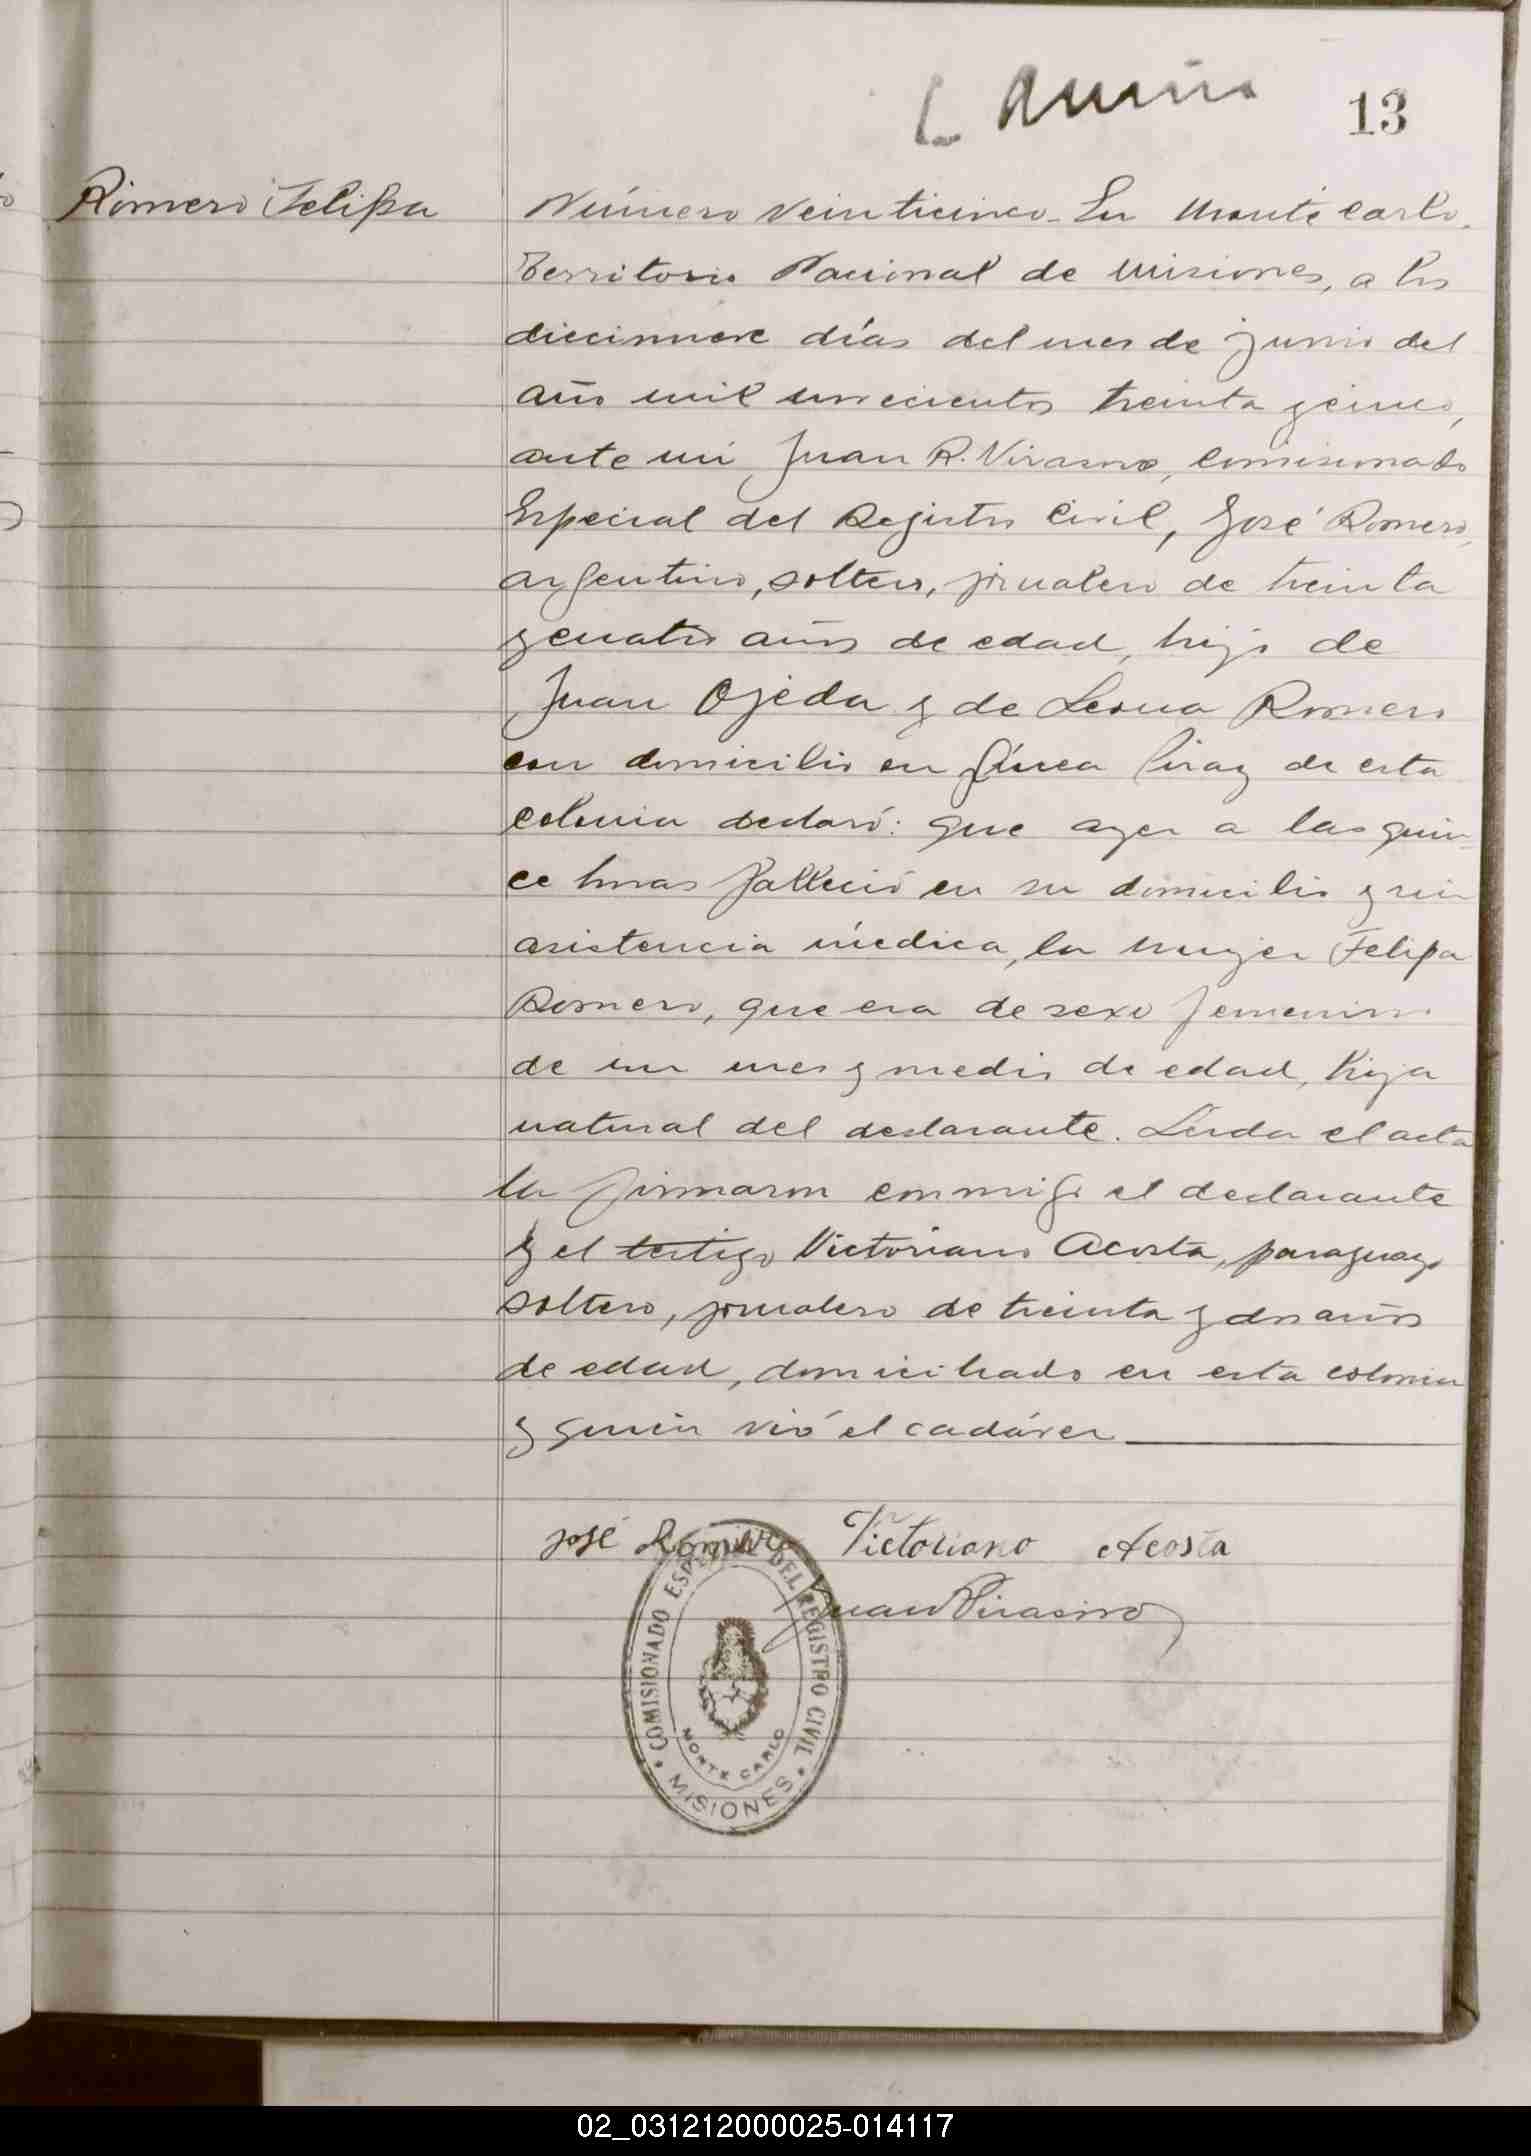 13
Romero Felipa
Número veinticinco. En Monte Carlo,
Territorio Nacional de Misiones, a los
diecinueve días del mes de junio del
año mil novecientos treinta y cinco,
ante mi Juan R. Virasoro, Comisionado
Especial del Registro Civil, José Romero,
argentino, soltero, jornalero de treinta
y cuatro años de edad, hijo de
Juan Ojeda y de Leona Romero
con domicilio en Línea Piray de esta
colonia declaró: que ayer a las quin-
ce horas falleció en su domicilio y sin
asistencia médica, la mujer Felipa
Romero, que era de sexo femenino
de un mes y medio de edad, hija
natural del declarante. Leída el acta
la firmaron conmigo el declarante
y el testigo Victoriano Acosta, paraguayo
soltero, jornalero de treinta y dos años
de edad, domiciliado en esta colonia
y quien vió el cadáver
José Romero Victoriano Acosta
Juan R Virasoro
COMISIONADO ESPECIAL DEL REGISTRO CIVIL
MONTE CARLO
MISIONES
02_031212000025-014117